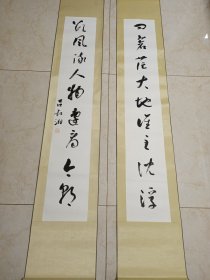 問蒼茫大地誰主沈浮
數風流人物還看今朝